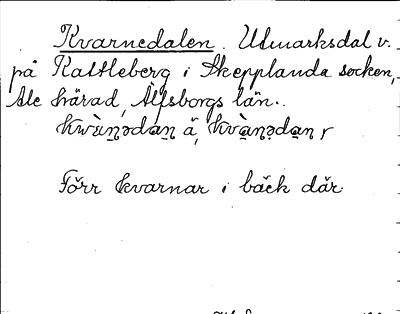 Kvarnedalen. Utmarksdal v.
på Kattleberg i Skepplanda socken,
Ale härad, Älfsborgs län.
kwàn̯ədan̯ ä, kvàn̯ədan̯ r
Förr kvarnar i bäck där.